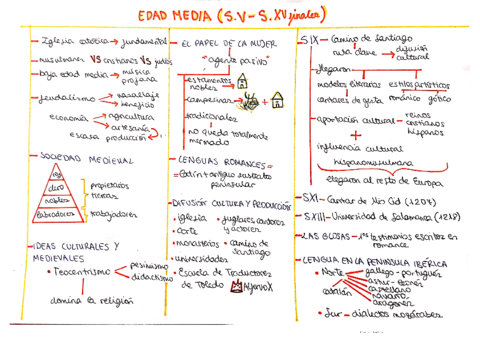 EDAD MEDIA (S.V - S.XV finales)
- Iglesia católica → fundamental
- musulmanes VS cristianos VS judíos
- baja edad media → música profana
- feudalismo → vasallaje
→ beneficio
economía → agricultura
→ artesanía
escasa producción
- SOCIEDAD MEDIEVAL
rey
clero
nobles
labradores
propietarios
tierras
trabajadores
IDEAS CULTURALES Y
MEDIEVALES
• Teocentrismo
pesimismo
didactismo
domina la religión
EL PAPEL DE LA MUJER
"agente pasivo"
estamentos
nobles →
campesinas → +
tradicionales
no queda totalmente
mermado
LENGUAS ROMANCES =
= latín + antiguo sustrato
peninsular
DIFUSIÓN CULTURA Y PRODUCCIÓN
• iglesia
• corte
• monasterios
• universidades
• juglares, cantores
y actores
• camino de
santiago
• Escuela de Traductores
de Toledo Alfonso X
SIX - Camino de Santiago
ruta clave → difusión
cultural
→ llegaron
modelos literarios
estilos artísticos
cantares de gesta
románico gótico
- aportación cultural → reinos
cristianos
hispanos
+
influencia cultural
hispanomusulmana
llegaron al resto de Europa
SXI - Cantar de Mio Cid (1207)
SXIII - Universidad de Salamanca (1218)
LAS GLOSAS - 1os testimonios escritos en
romance
LENGUA EN LA PENINSULA IBÉRICA
• Norte
gallego - portugués
astur - leonés
castellano
navarro
aragonés
catalán
• Sur - dialectos mozárabes